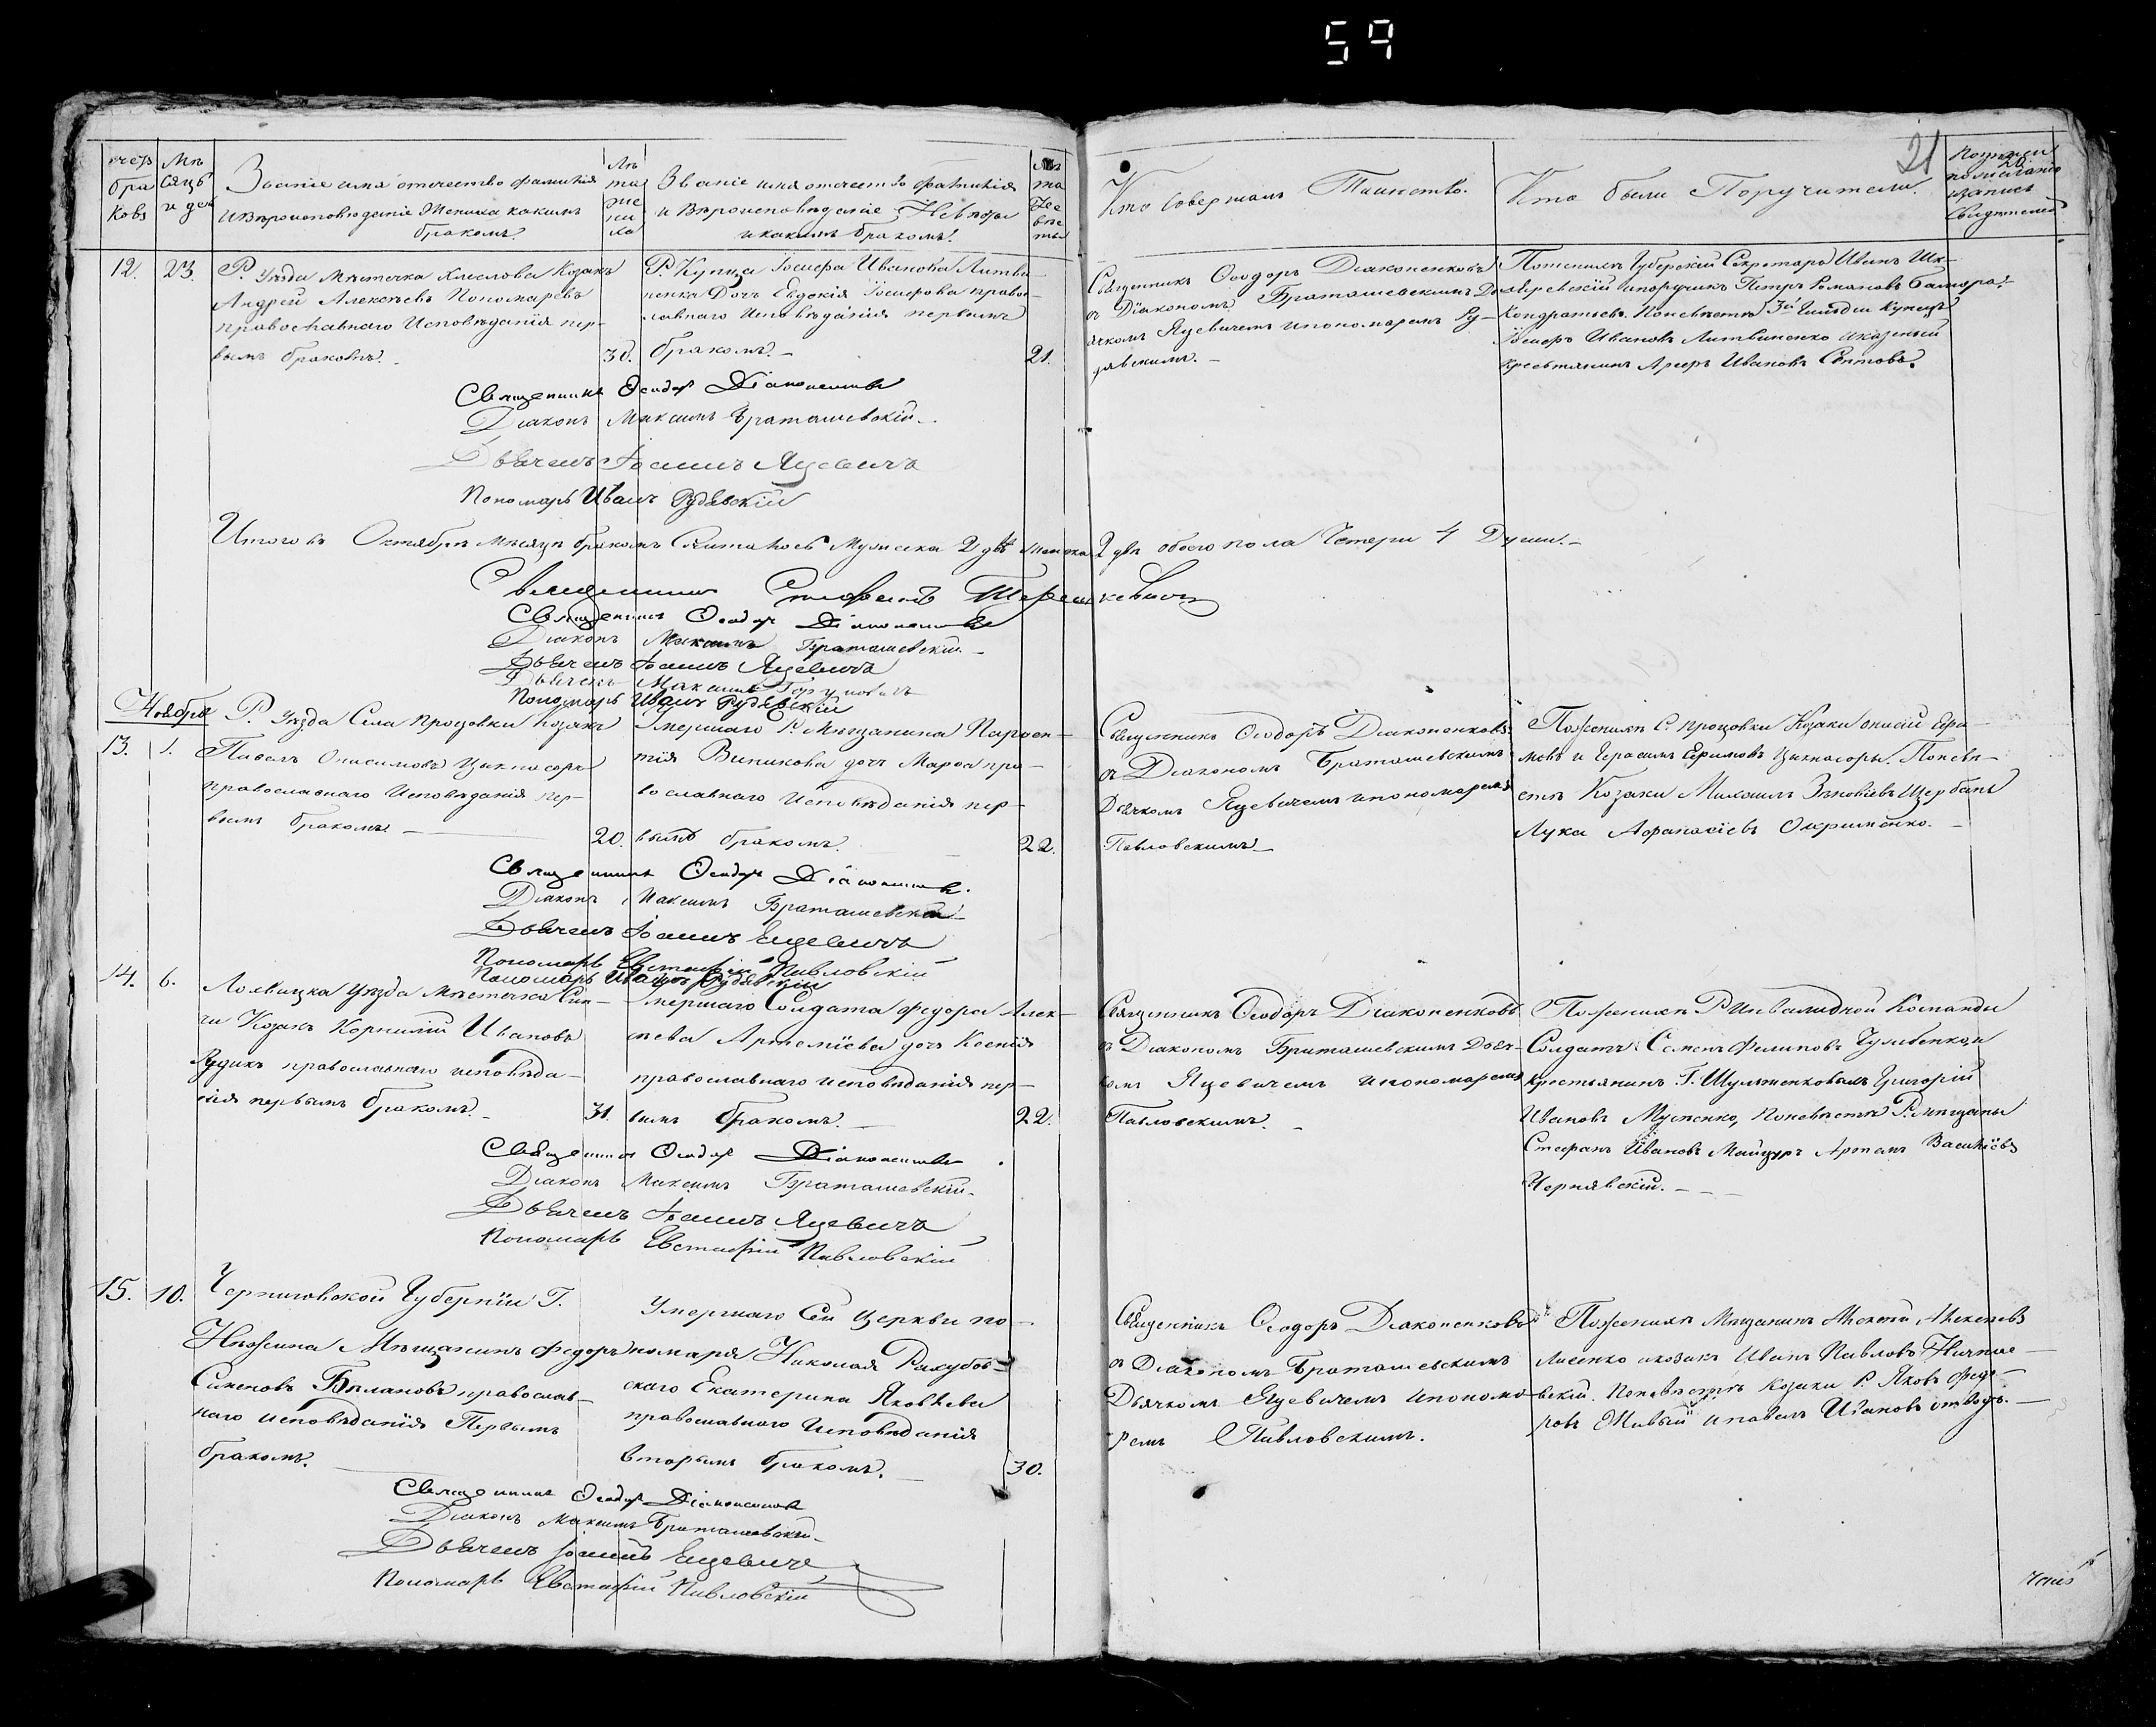 59
21
счетъ
бра
ковъ
Мѣ
сяцъ
и ден
Званіе имя отечество фамилія
и вѣроисповѣданіе Жениха какимъ
бракомъ.
Лѣ
та
же
ни
ха
Званіе имя отечество фамилія
и вѣроисповѣданіе Невѣсты
и какимъ бракомъ.
Лѣ
та
Не
вѣс
ты
Кто совершалъ Таинство.
Кто были Поручители.
12. 23.
Р. уѣзда мѣстечка Хмелова Козакъ
Андрей Алексѣевъ Пономаревъ
православнаго исповѣданія пер-
вымъ бракомъ. 30.
Р. Купца Іосифа Иванова Литви
ненка Дочь Евдокія Іосифова право-
славнаго исповѣданія первымъ
бракомъ. 21.
Священникъ Ѳеодоръ Діаконенковъ
съ Діакономъ Браташевскимъ Дь-
ячкомъ Яцевичемъ и пономаремъ Ру-
дявскимъ.
По женихѣ Губерскій Секретарь Иванъ
и поручикъ Петръ Романовъ
Кондратьевъ. По невѣстѣ 3й гильдіи Купецъ
Іосифъ Ивановъ Литвиненко и казеный
крестьянинъ Ивановъ
Священникъ Ѳеодоръ Діаконенковъ
Діаконъ Максимъ Браташевскій
Дьячекъ Іоаннъ Яцевичъ
Пономарь Иванъ Рудявскій
Итого въ Октябрѣ мѣсяцѣ бракомъ сочиталось мужеска 2 двѣ женска 2 двѣ обоего пола Четери 4 Души.
Священникъ Стефанъ Терешкевичъ
Священникъ Ѳеодоръ Діаконенковъ
Діаконъ Максимъ Браташевскій
Дьячекъ Іоаннъ Яцевичъ
Дьячекъ Максимъ
Пономарь Иванъ Рудявскій
Ноября
13. 1.
Р. уѣзда Села Процовки Козакъ
Павелъ Онисимовъ Цыкпасоръ
православнаго исповѣданія пер-
вымъ бракомъ 20.
Умершаго Р. мѣщанина Парѳен-
тія Виникова дочь Марѳа пра-
вославнаго исповѣданія пер-
вымъ бракомъ. 22.
Священникъ Ѳеодоръ Діаконенковъ
съ Діакономъ Браташевскимъ
Дьячкомъ Яцевичемъ и пономаремъ
Павловскимъ
По женихѣ С. Процовки Козаки Онисій Ефи-
мовъ и Герасимъ Ефимовъ Цыкпасоры. По невѣ-
стѣ Козаки Михаилъ Зѣновіевъ Щербань
Лука Аѳанасіевъ Охрименко.
Священникъ Ѳеодоръ Діаконенковъ
Діаконъ Максимъ Браташевскій
Дьячекъ Іоаннъ Яцевичъ
Пономарь Евстафій Павловскій
Пономарь Иванъ Рудявскій
14. 6.
Лохвицка уѣзда мѣстечка Сен-
чи Козакъ Корнилій Ивановъ
Рудикъ православнаго исповѣда-
нія первымъ бракомъ. 31.
Умершаго Солдата Федора Алек-
сѣева Артеміева дочь Ксенія
православнаго исповѣданія пер-
вымъ бракомъ. 22.
Священникъ Ѳеодоръ Діаконенковъ
съ Діакономъ Браташевскимъ Дьяч-
комъ Яцевичемъ и пономаремъ
Павловскимъ.
По женихѣ Р. Инвалидной Команды
Солдатъ Семенъ Филиповъ и
крестьянинъ Г. Шульженковыхъ Григорій
Ивановъ Мусіенко, по невѣстѣ Р. мѣщаны
Стефанъ Ивановъ Майцуръ Артемъ Василіевъ
Чернявскій.
Священникъ Ѳеодоръ Діаконенковъ
Діаконъ Максимъ Браташевскій
Дьячекъ Іоаннъ Яцевичъ
Пономарь Евстафій Павловскій
15. 10.
Черниговской Губерніи Г.
Нѣжина Мѣщанинъ Федоръ
Симеовъ Бѣлановъ православ-
наго исповѣданія Первымъ
бракомъ.
Умершаго сей церкви по-
номаря Николая Ракубов-
скаго Екатерина Яковлева
православнаго исповѣданія
вторымъ бракомъ. 30.
Священникъ Ѳеодоръ Діаконенковъ
съ Діакономъ Браташевскимъ
Дьячкомъ Яцевичемъ и понома-
ремъ Павловскимъ.
По женихѣ Мѣщанинъ
Лисенко и козакъ Иванъ Павловъ Ничпае-
вскій. По невѣстѣ Козаки Р. Яковъ Федо-
ровъ Живый и Павелъ Ивановъ
Священникъ Ѳеодоръ Діаконенковъ
Діаконъ Максимъ Браташевскій
Дьячекъ Іоаннъ Яцевичъ
Пономарь Евстафій Павловскій